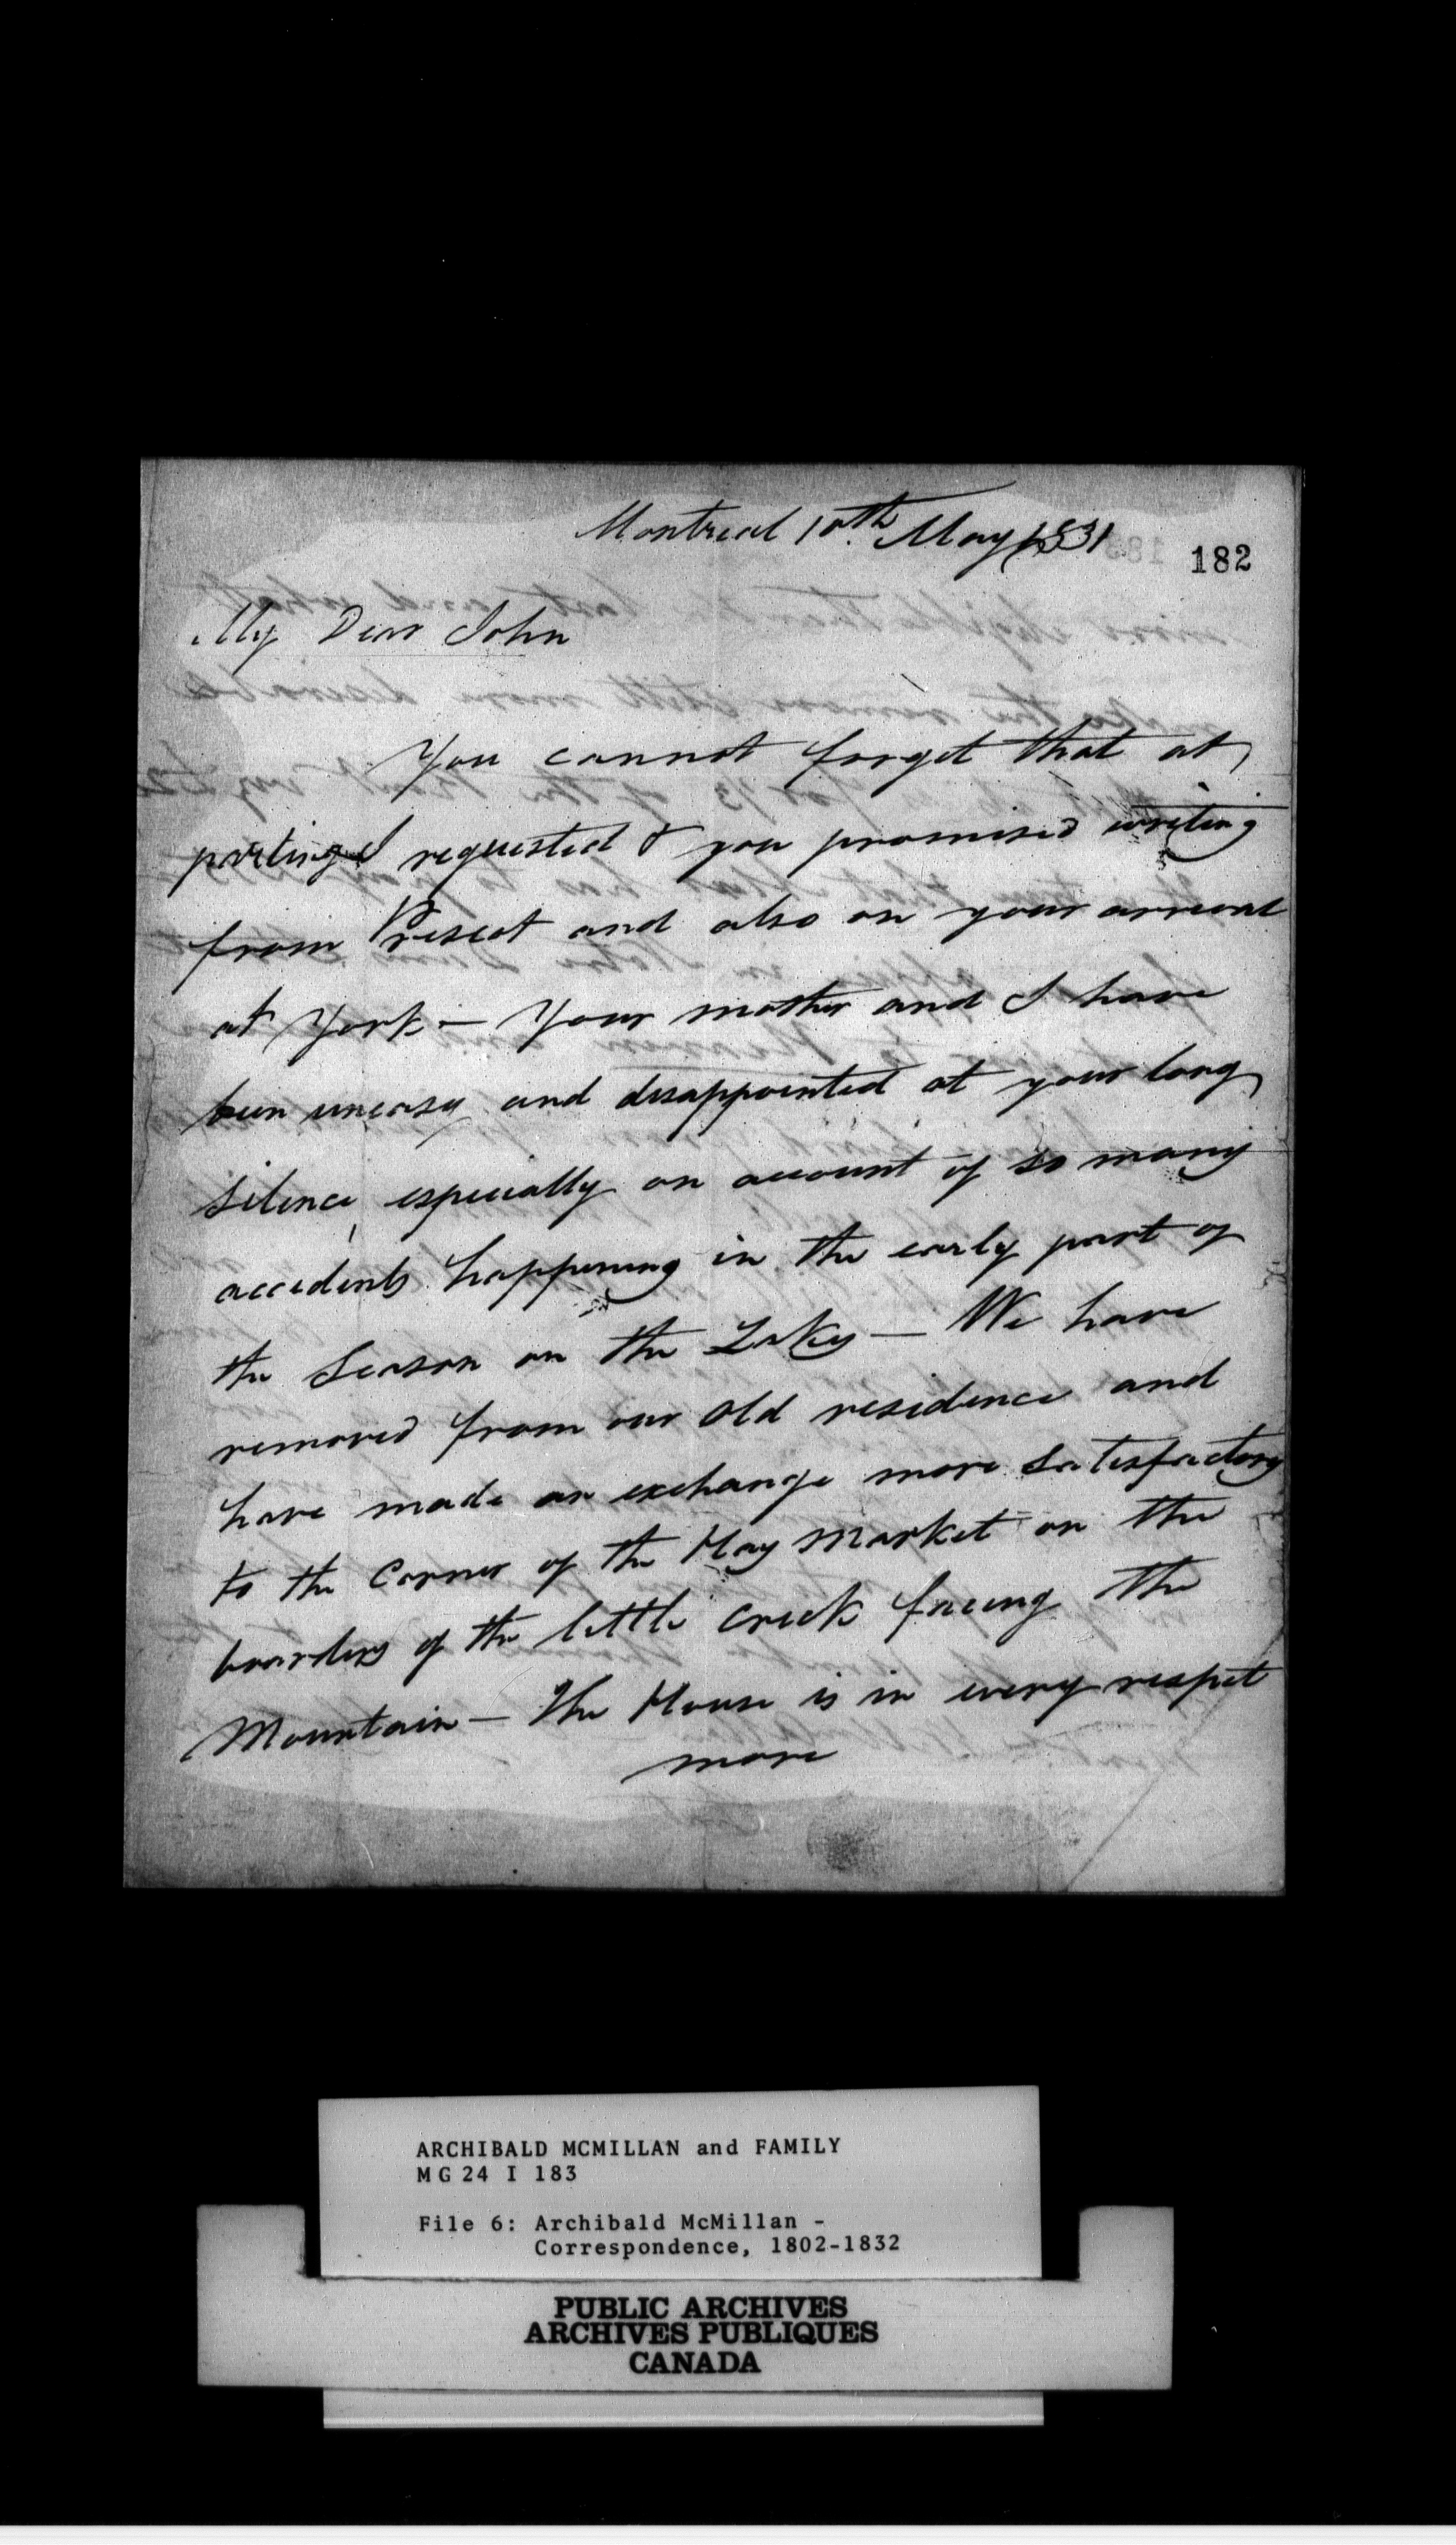 Montreal 10th May 1831
182
My Dear John
You cannot forget that at
parting I requested & you promised writing
from Prescot and also on your arrival
at York — Your mother and I have
been uneasy and disappointed at your long
silence especially on account of so many
accidents happening in the early part of
the Season on the Lakes — We have
removed from our old residence and
have made an exchange more satisfactory
to the Corner of the Hay Market on the
boarders of the little Creek facing the
Mountain — The House is in every respect
more
ARCHIBALD MCMILLAN and FAMILY
MG 24 I 183
File 6: Archibald McMillan -
Correspondence, 1802-1832
PUBLIC ARCHIVES
ARCHIVES PUBLIQUES
CANADA